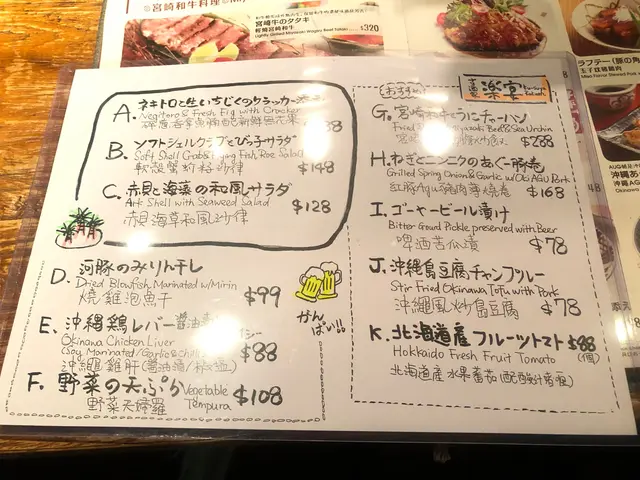 宮崎和牛料理
宮崎牛のタタキ
輕燒宮崎和牛
Lightly Grilled Miyazaki Wagyu Beef Tataki
$320
A. ネギトロと生いちじくのクラッカー
Negitoro & Fresh Fig with Cracker
B. ソフトシェルクラブとびっ子サラダ
Soft Shell Crab & Flying Fish Roe Salad
軟殼蟹蚧籽沙律
$148
C. 赤貝と海藻の和風サラダ
Ark Shell with Seaweed Salad
赤貝海草和風沙律
$128
D. 河豚のみりん干し
Dried Blowfish Marinated w/Mirin
燒雞泡魚干
$99
かんぱい!!
E. 沖縄鶏レバー
Okinawa Chicken Liver
沖繩雞肝
$88
F. 野菜の天ぷら Vegetable Tempura
野菜天婦羅
$108
おすすめ
楽宴
G. 宮崎和牛とうにチャーハン
Beef & Sea Urchin
$288
H. ねぎとニンニクのあぐー豚巻
Grilled Spring Onion & Garlic w/Oki AGU Pork
紅豚Agu豬肉薄燒卷
$168
I. ゴーヤービール漬け
Bitter Gourd Pickle, preserved with Beer
啤酒苦瓜漬
$78
J. 沖縄島豆腐チャンプルー
Stir Fried Okinawa Tofu with Pork
沖繩風炒島豆腐
$78
K. 北海道産フルーツトマト $88
(1個)
Hokkaido Fresh Fruit Tomato
北海道產水果蕃茄